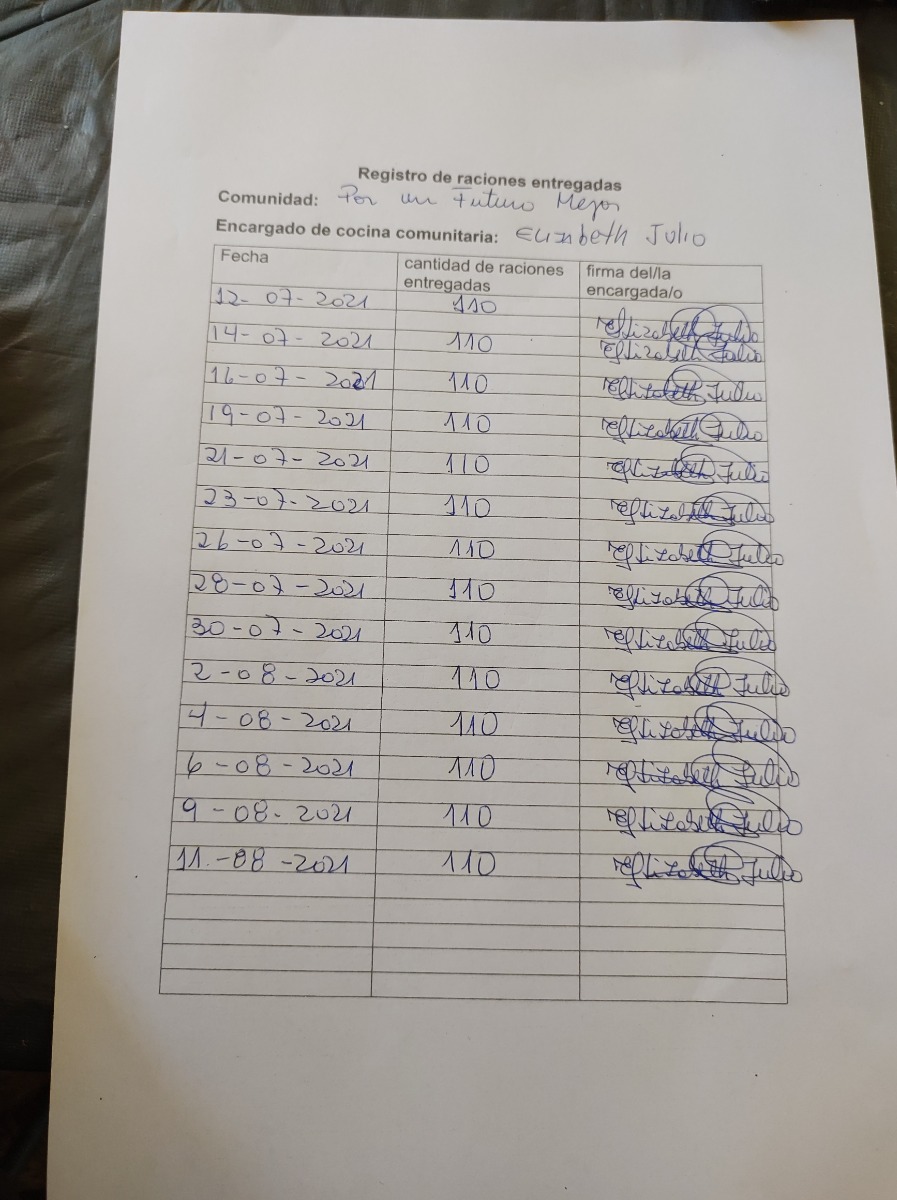 Registro de raciones entregadas
Comunidad: Por un Futuro Mejor
Encargado de cocina comunitaria: Elizabeth Julio
Fecha cantidad de raciones entregadas firma del/la encargada/o
12-07-2021 110 Elizabeth Julio
14-07-2021 110 Elizabeth Julio
16-07-2021 110 Elizabeth Julio
19-07-2021 110 Elizabeth Julio
21-07-2021 110 Elizabeth Julio
23-07-2021 110 Elizabeth Julio
26-07-2021 110 Elizabeth Julio
28-07-2021 110 Elizabeth Julio
30-07-2021 110 Elizabeth Julio
2-08-2021 110 Elizabeth Julio
4-08-2021 110 Elizabeth Julio
6-08-2021 110 Elizabeth Julio
9-08-2021 110 Elizabeth Julio
11-08-2021 110 Elizabeth Julio